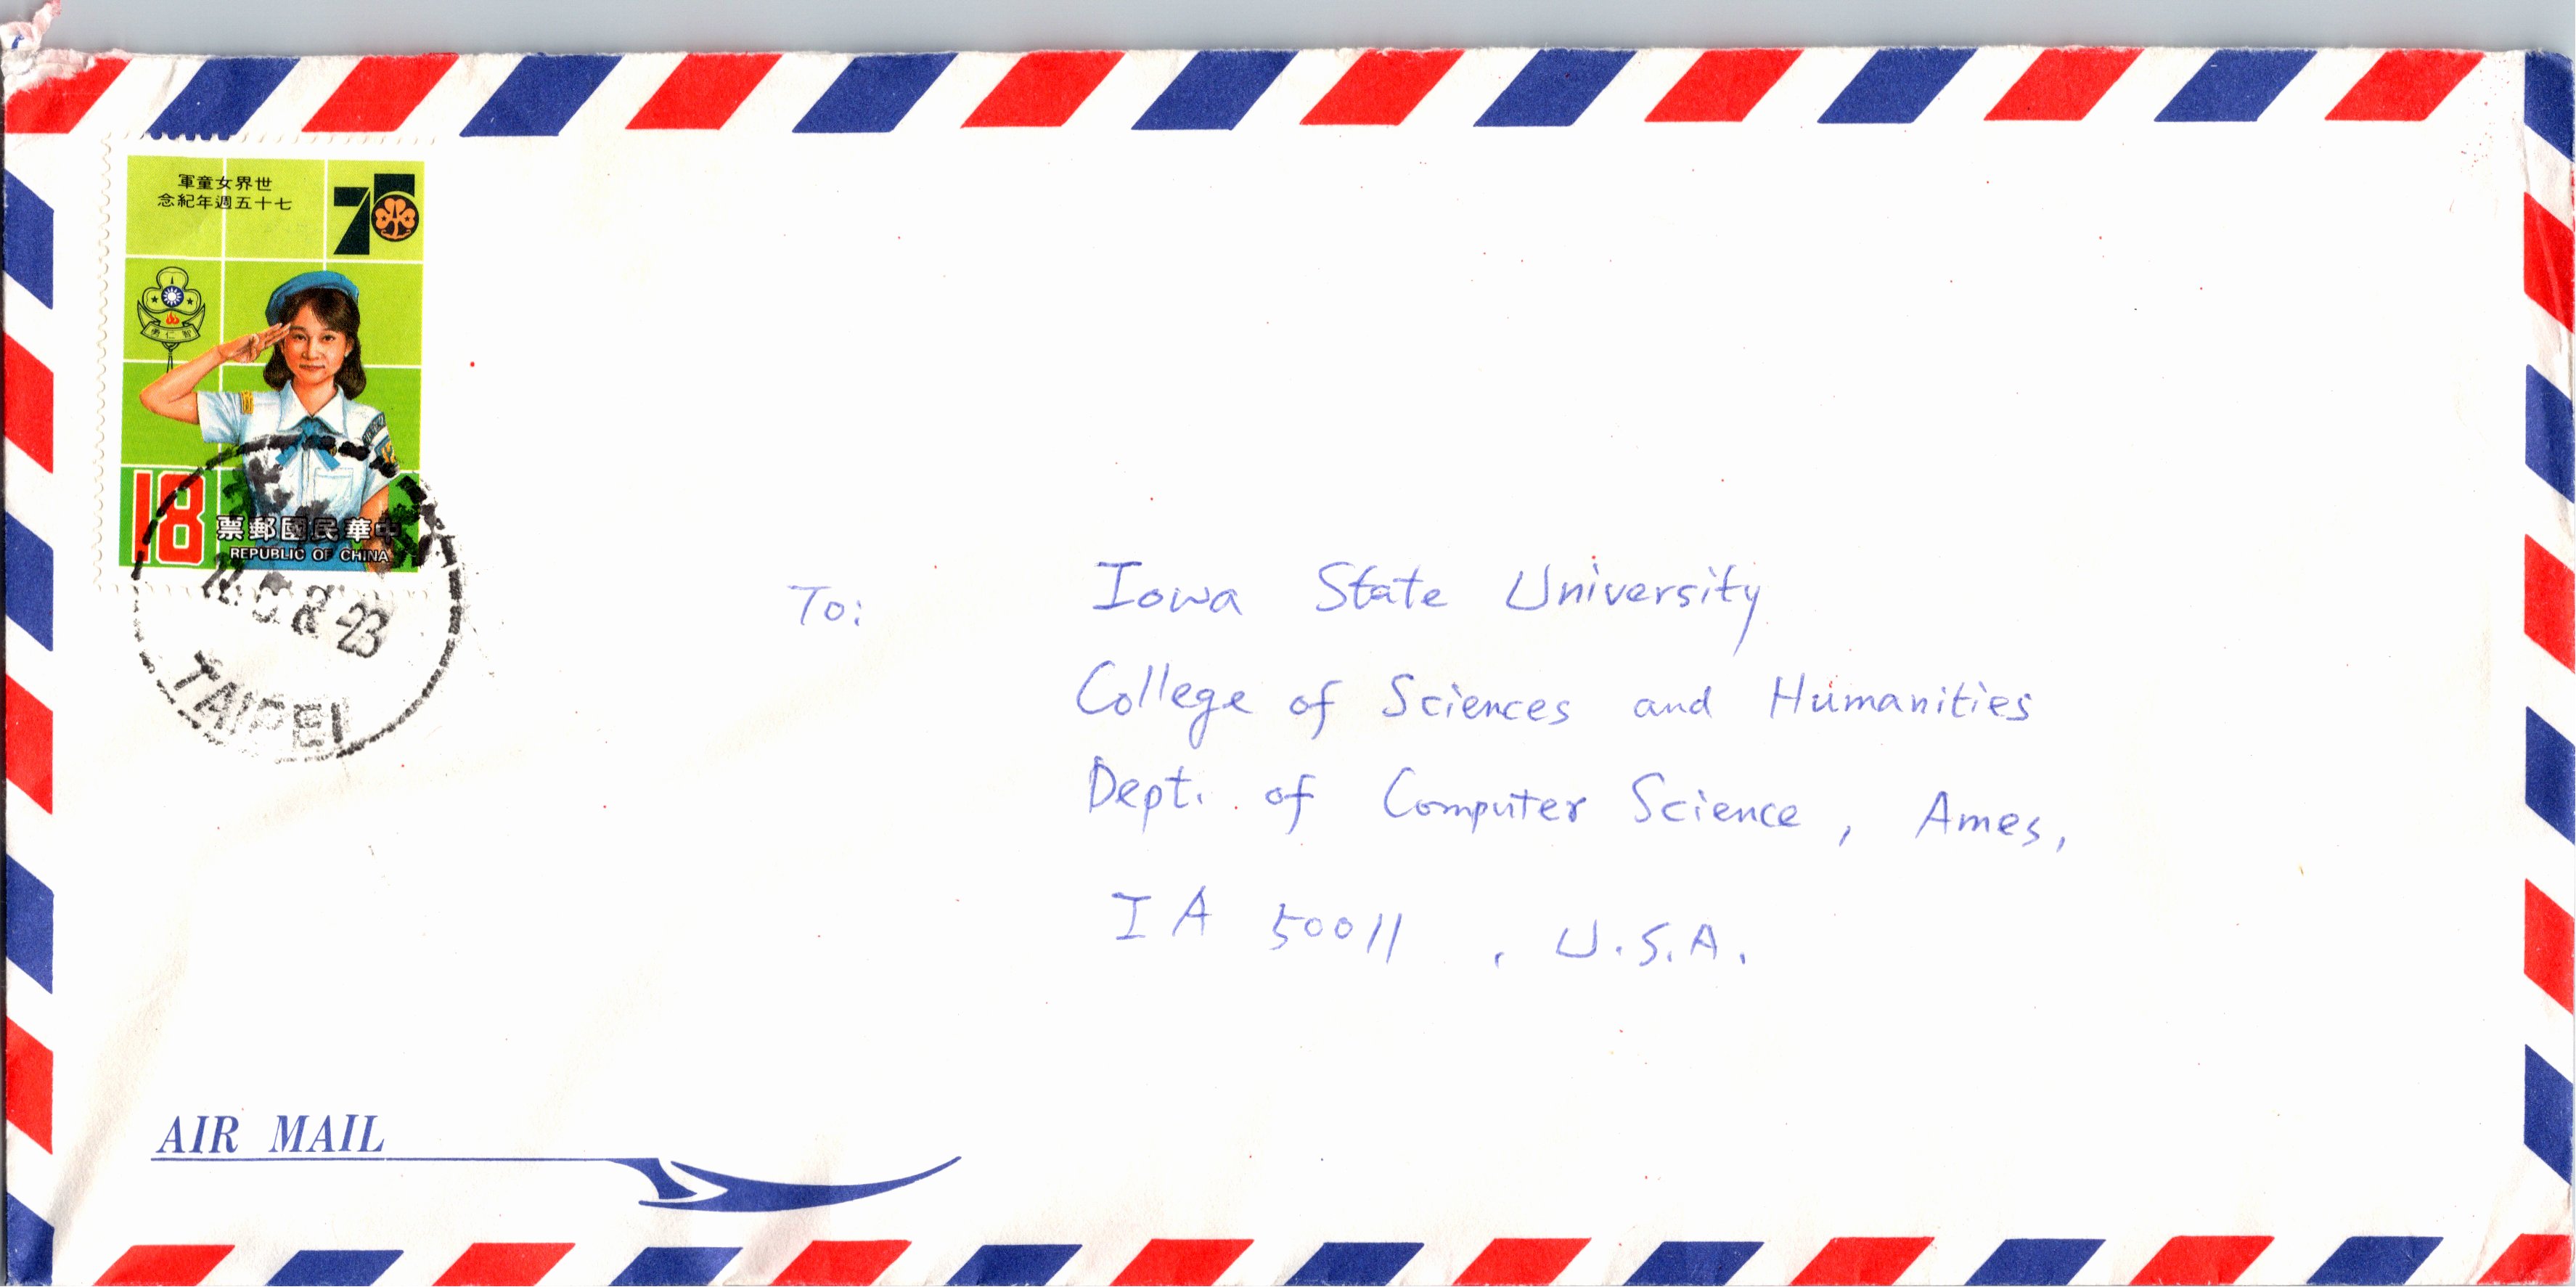 世界女童軍
七十五週年紀念
75
智仁勇
18
中華民國郵票
REPUBLIC OF CHINA
TAIPEI
To:
Iowa State University
College of Sciences and Humanities
Dept. of Computer Science, Ames,
IA 50011, U.S.A.
AIR MAIL